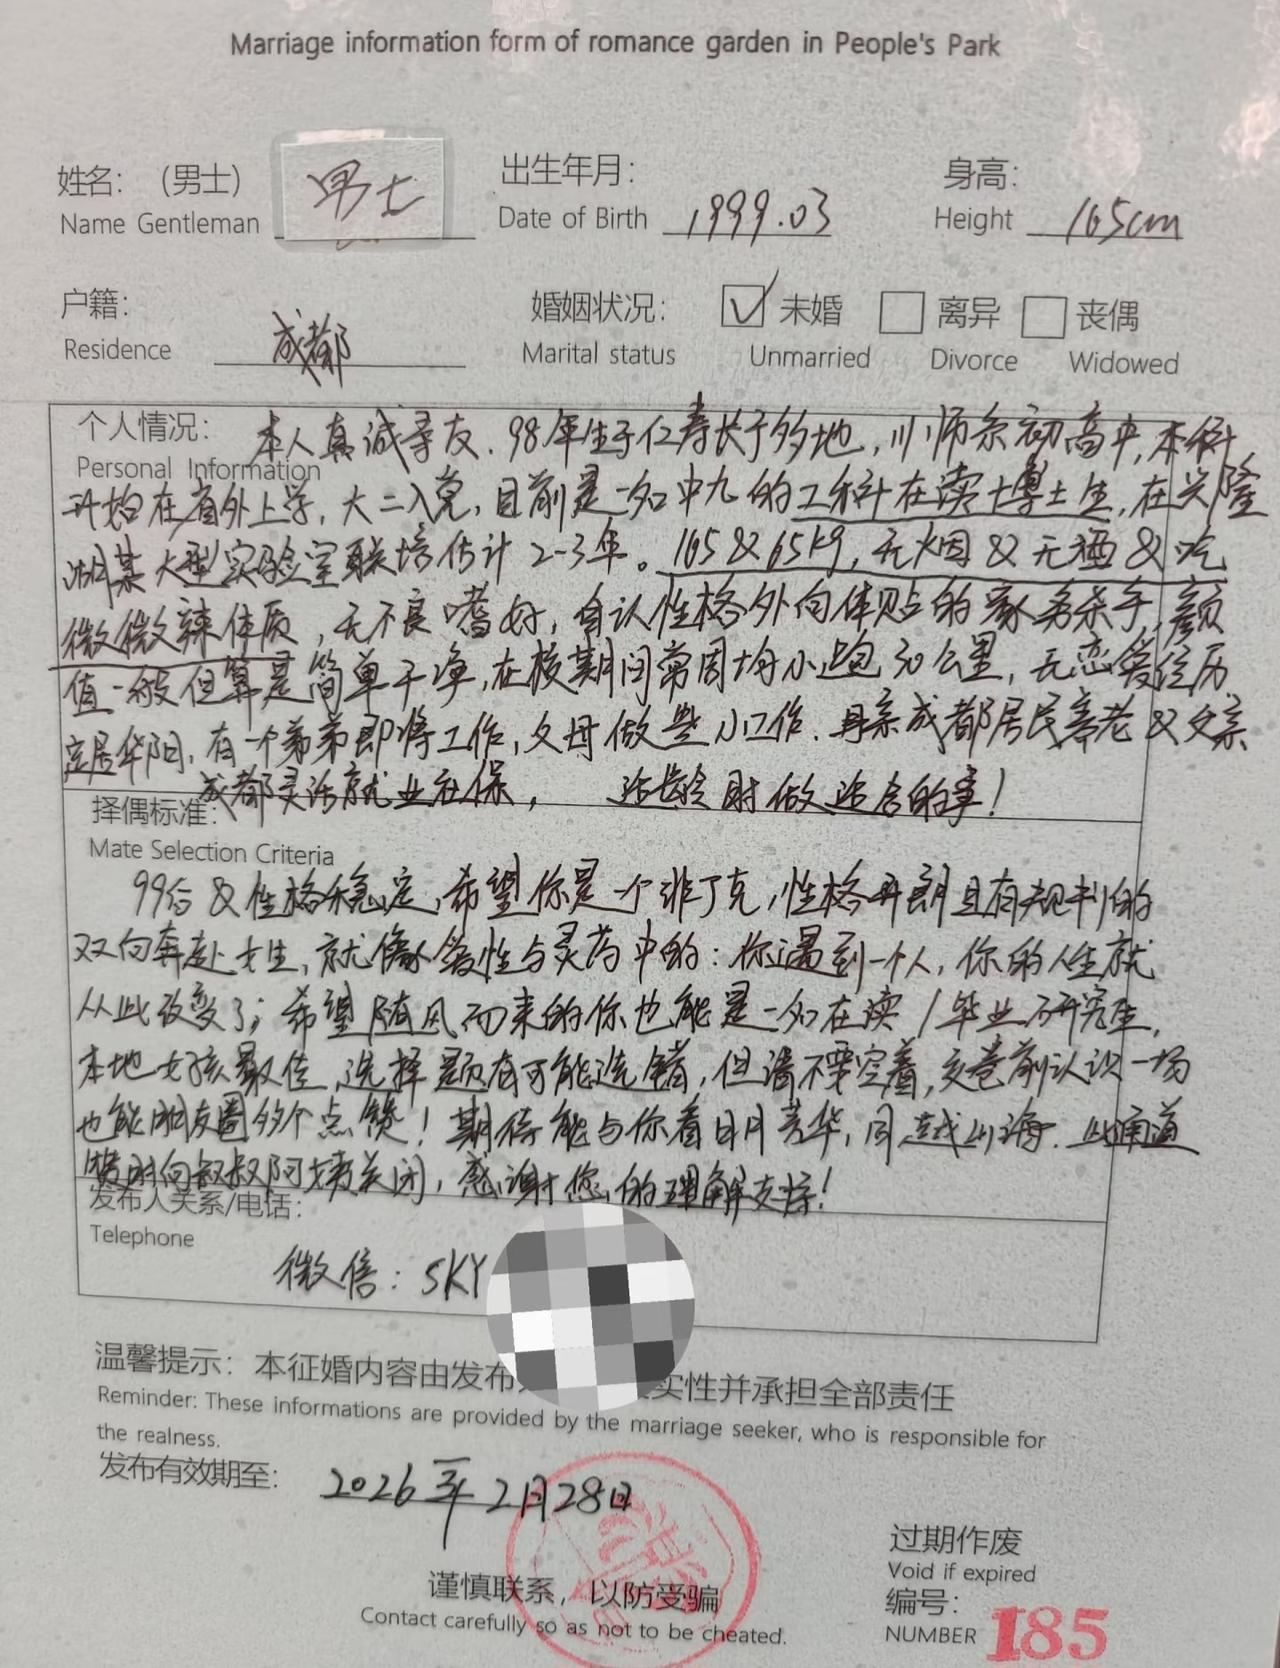 Marriage information form of romance garden in People's Park
姓名：（男士） 男士 出生年月： 身高：
Name Gentleman Date of Birth 1999.03 Height 165cm
户籍： 婚姻状况： ☑ 未婚 □ 离异 □ 丧偶
Residence 成都 Marital status Unmarried Divorce Widowed
个人情况： 本人真诚寻友.98年生于仁寿长于多地，川师系初高中，本科
Personal Information
开始在省外上学，大二入党，目前是一名中九的工科在读博士生，在兴隆
湖某大型实验室联培估计2-3年。165&65kg，无烟&无酒&吃
微微辣体质，无不良嗜好，自认性格外向体贴的家务杀手，颜
值一般但算是简单干净，在校期间常周均小跑30公里，无恋爱经历
定居华阳，有一个弟弟即将工作，父母做些小工作.母亲成都居民养老&父亲
成都灵活就业社保， 适龄时做适合的事！
择偶标准：
Mate Selection Criteria
99后&性格稳定，希望你是一个非丁克，性格开朗且有规划的
双向奔赴女生，就像爱性与灵药中的：你遇到一个人，你的人生就
从此改变了；希望随风而来的你也能是一名在读/毕业研究生，
本地女孩最佳，选择题有可能选错，但请不要空着，交卷前认识一场
也能朋友圈多个点赞！期待能与你看日月芳华，同越山海.此通道
暂时向叔叔阿姨关闭，感谢您的理解支持！
发布人关系/电话：
Telephone
微信：SKY
温馨提示：本征婚内容由发布 实性并承担全部责任
Reminder: These informations are provided by the marriage seeker, who is responsible for
the realness.
发布有效期至： 2026年2月28日
过期作废
Void if expired
谨慎联系，以防受骗 编号：
Contact carefully so as not to be cheated. NUMBER 185